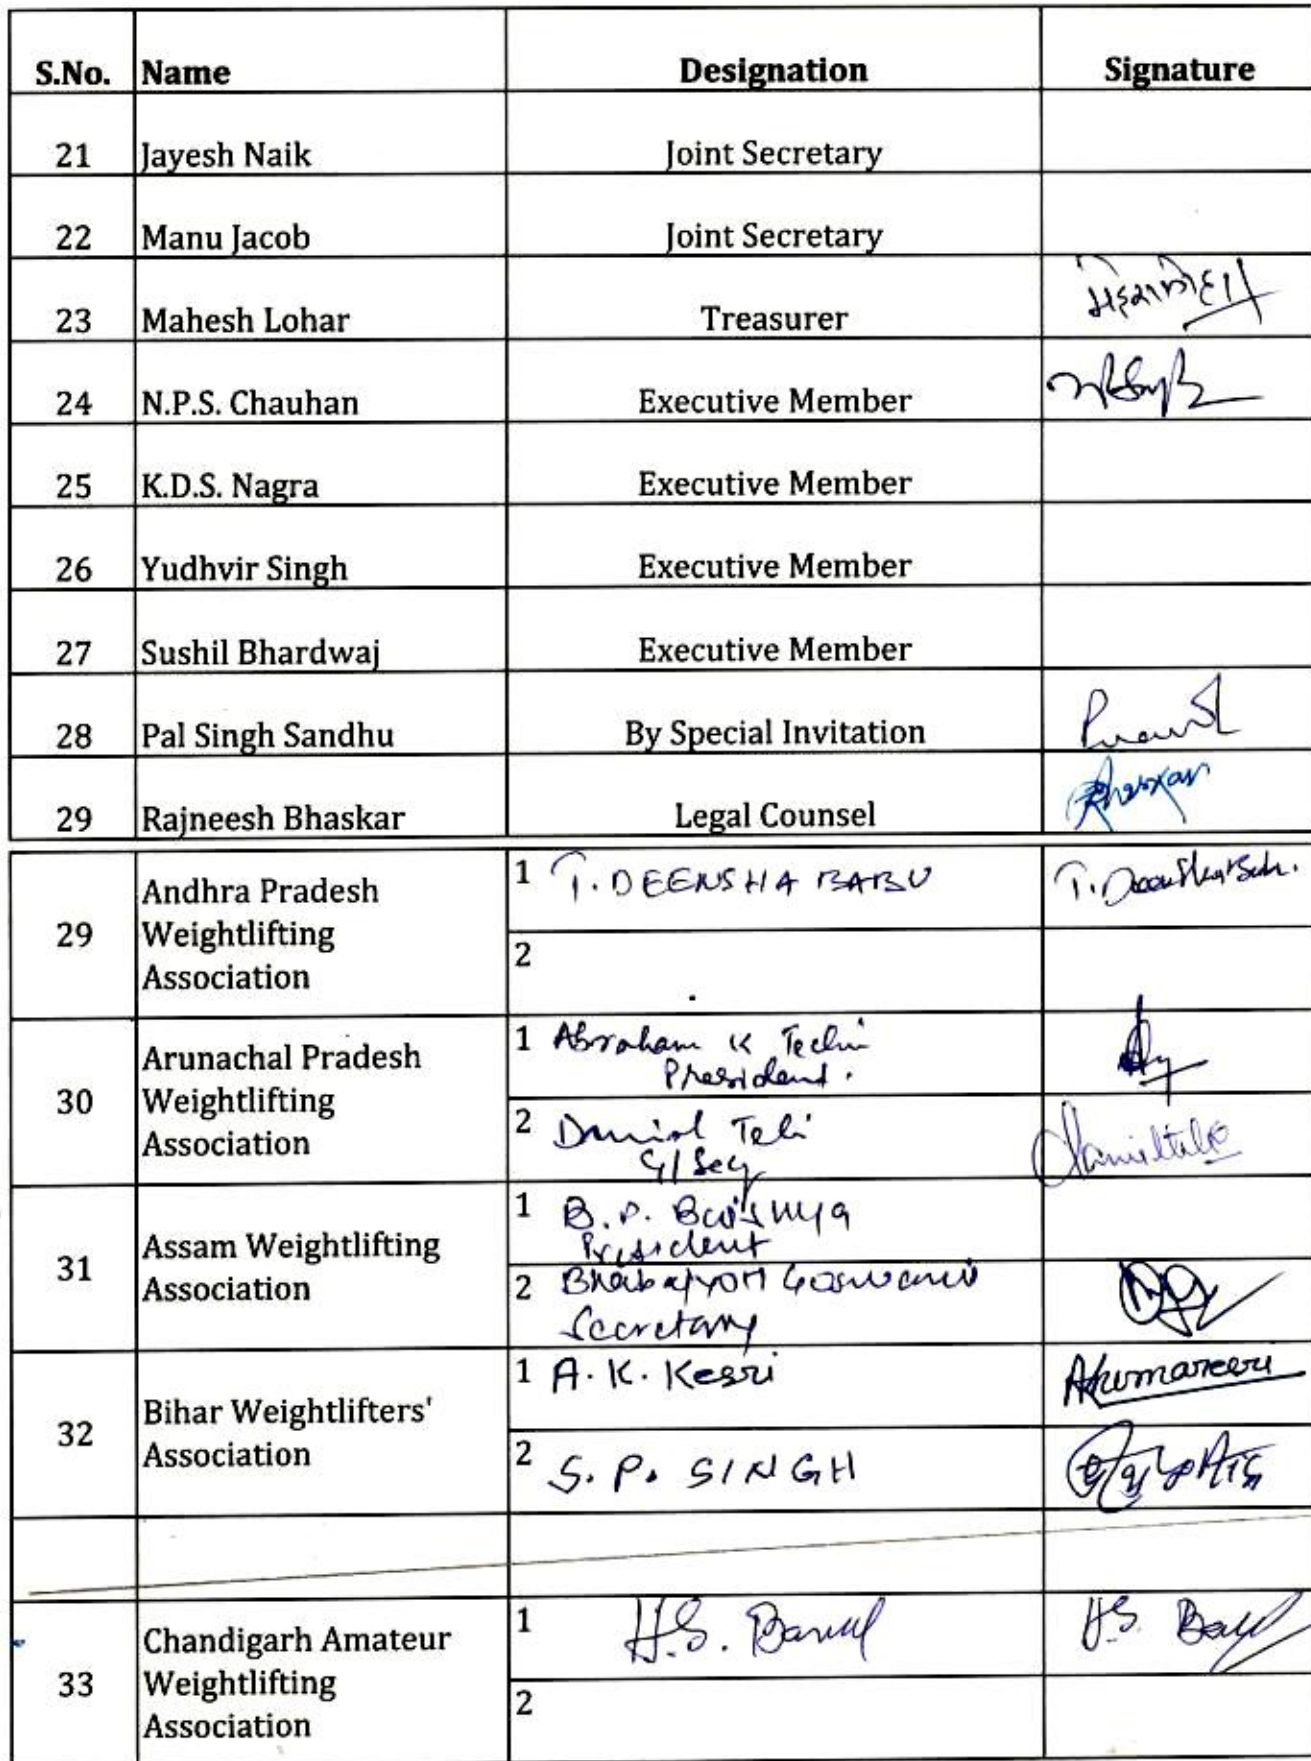 S.No. Name Designation Signature
21 Jayesh Naik Joint Secretary
22 Manu Jacob Joint Secretary
23 Mahesh Lohar Treasurer
24 N.P.S. Chauhan Executive Member
25 K.D.S. Nagra Executive Member
26 Yudhvir Singh Executive Member
27 Sushil Bhardwaj Executive Member
28 Pal Singh Sandhu By Special Invitation
29 Rajneesh Bhaskar Legal Counsel
29
Andhra Pradesh
Weightlifting
Association
1 T. DEENSHA BABU
2
30
Arunachal Pradesh
Weightlifting
Association
1 Abraham K Techi
President.
2 Daniel Teli
G/Secy
31
Assam Weightlifting
Association
1 B.P. Baishya
President
2 Bhabajyoti Goswami
Secretary
32
Bihar Weightlifters'
Association
1 A.K. Kesri
2 S.P. SINGH
33
Chandigarh Amateur
Weightlifting
Association
1 H.S.
H.S.
2